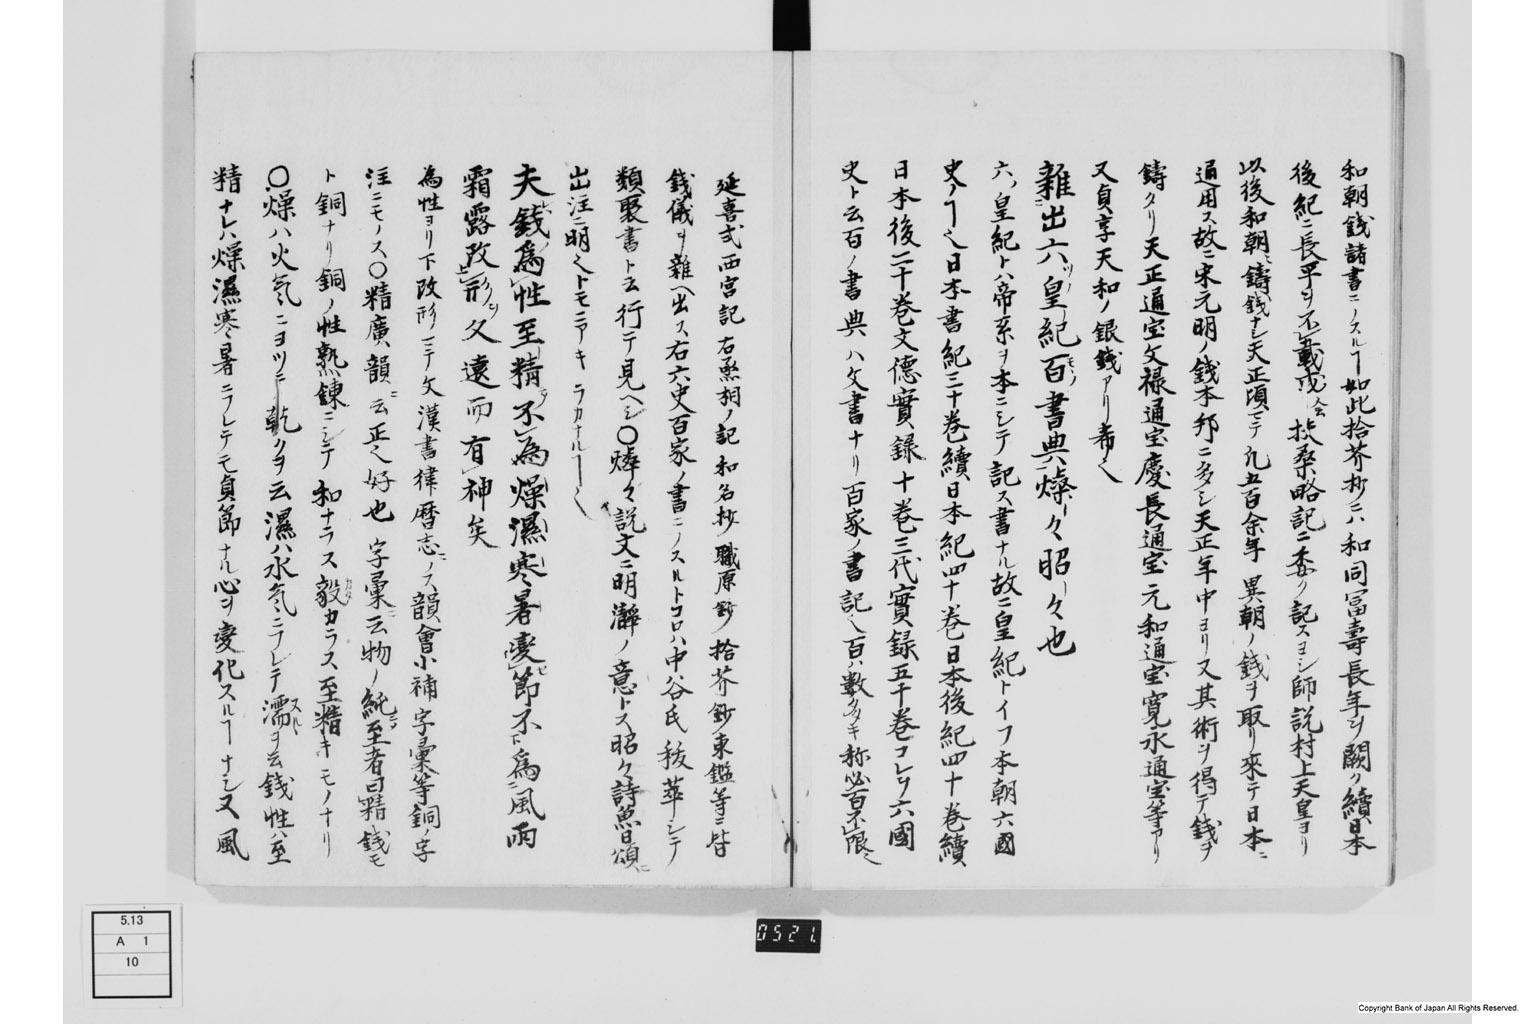 和朝錢諸書ニノスルヿ如此拾芥抄ニハ和同冨壽長年ヲ闕ク續日本
後紀ニ長平ヲ不載或会扶桑略記ニ委ク記スヨシ師説村上天皇ヨリ
以後和朝ニ鑄錢ナシ天正頃マテ凡五百余年異朝ノ錢ヲ取リ來テ日本ニ
通用ス故ニ宋元明ノ錢本邦ニ多シ天正年中ヨリ又其術ヲ得テ錢ヲ
鑄タリ天正通宝文禄通宝慶長通宝元和通宝寛永通宝等アリ
又貞享天和ノ銀錢アリ希也
雜出六ノ皇紀百書典燦々昭々也
六ノ皇紀トハ帝系ヲ本ニシテ記ス書ナル故ニ皇紀トイフ本朝六國
史ノヿ也日本書紀三十巻續日本紀四十巻日本後紀四十巻續
日本後紀二十巻文德實録十巻三代實録五十巻コレヲ六國
史ト云百ノ書典ハ文書ナリ百家ノ書記也百ハ數多キ称必百不限也
延喜式西宮記右丞相ノ記和名抄職原鈔拾芥鈔東鑑等ニ皆
錢儀ヲ雜ヘ出ス右六史百家ノ書ニノスルトコロハ中谷氏秡萃シテ
類聚書ト云行テ見ヘシ〇燐々説文ニ明瀞ノ意トス昭々詩魯頌ニ
出注ニ明也トモニアキラカナルヿ也
夫錢為性至精不為燥濕寒暑変節不為風雨
霜露改形久遠而有神矣
為性ヨリ下改形マテ文漢書律暦志ニノス韻會小補字彙等銅ノ字
注ニモノス〇精廣韻ニ云正也好也字彙ニ云物ノ純至者曰精錢モ
ト銅ナリ銅ノ性熟錬ニシテ和ナラス毅カラス至精キモノナリ
〇燥ハ火気ニヨツテ乾クヲ云濕ハ水気ニフレテ濡ヲ云錢性ハ至
精ナレハ燥濕寒暑ニフレテモ貞節ナル心ヲ変化スルヿナシ又風
5.13
A 1
10
0521.
Copyright Bank of Japan All Rights Reserved.